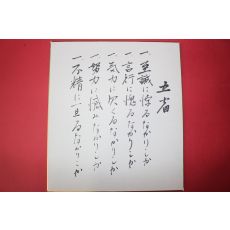 五省
一、至誠に悖るなかりしか
一、言行に恥づるなかりしか
一、気力に欠くるなかりしか
一、努力に憾みなかりしか
一、不精に亘るなかりしか